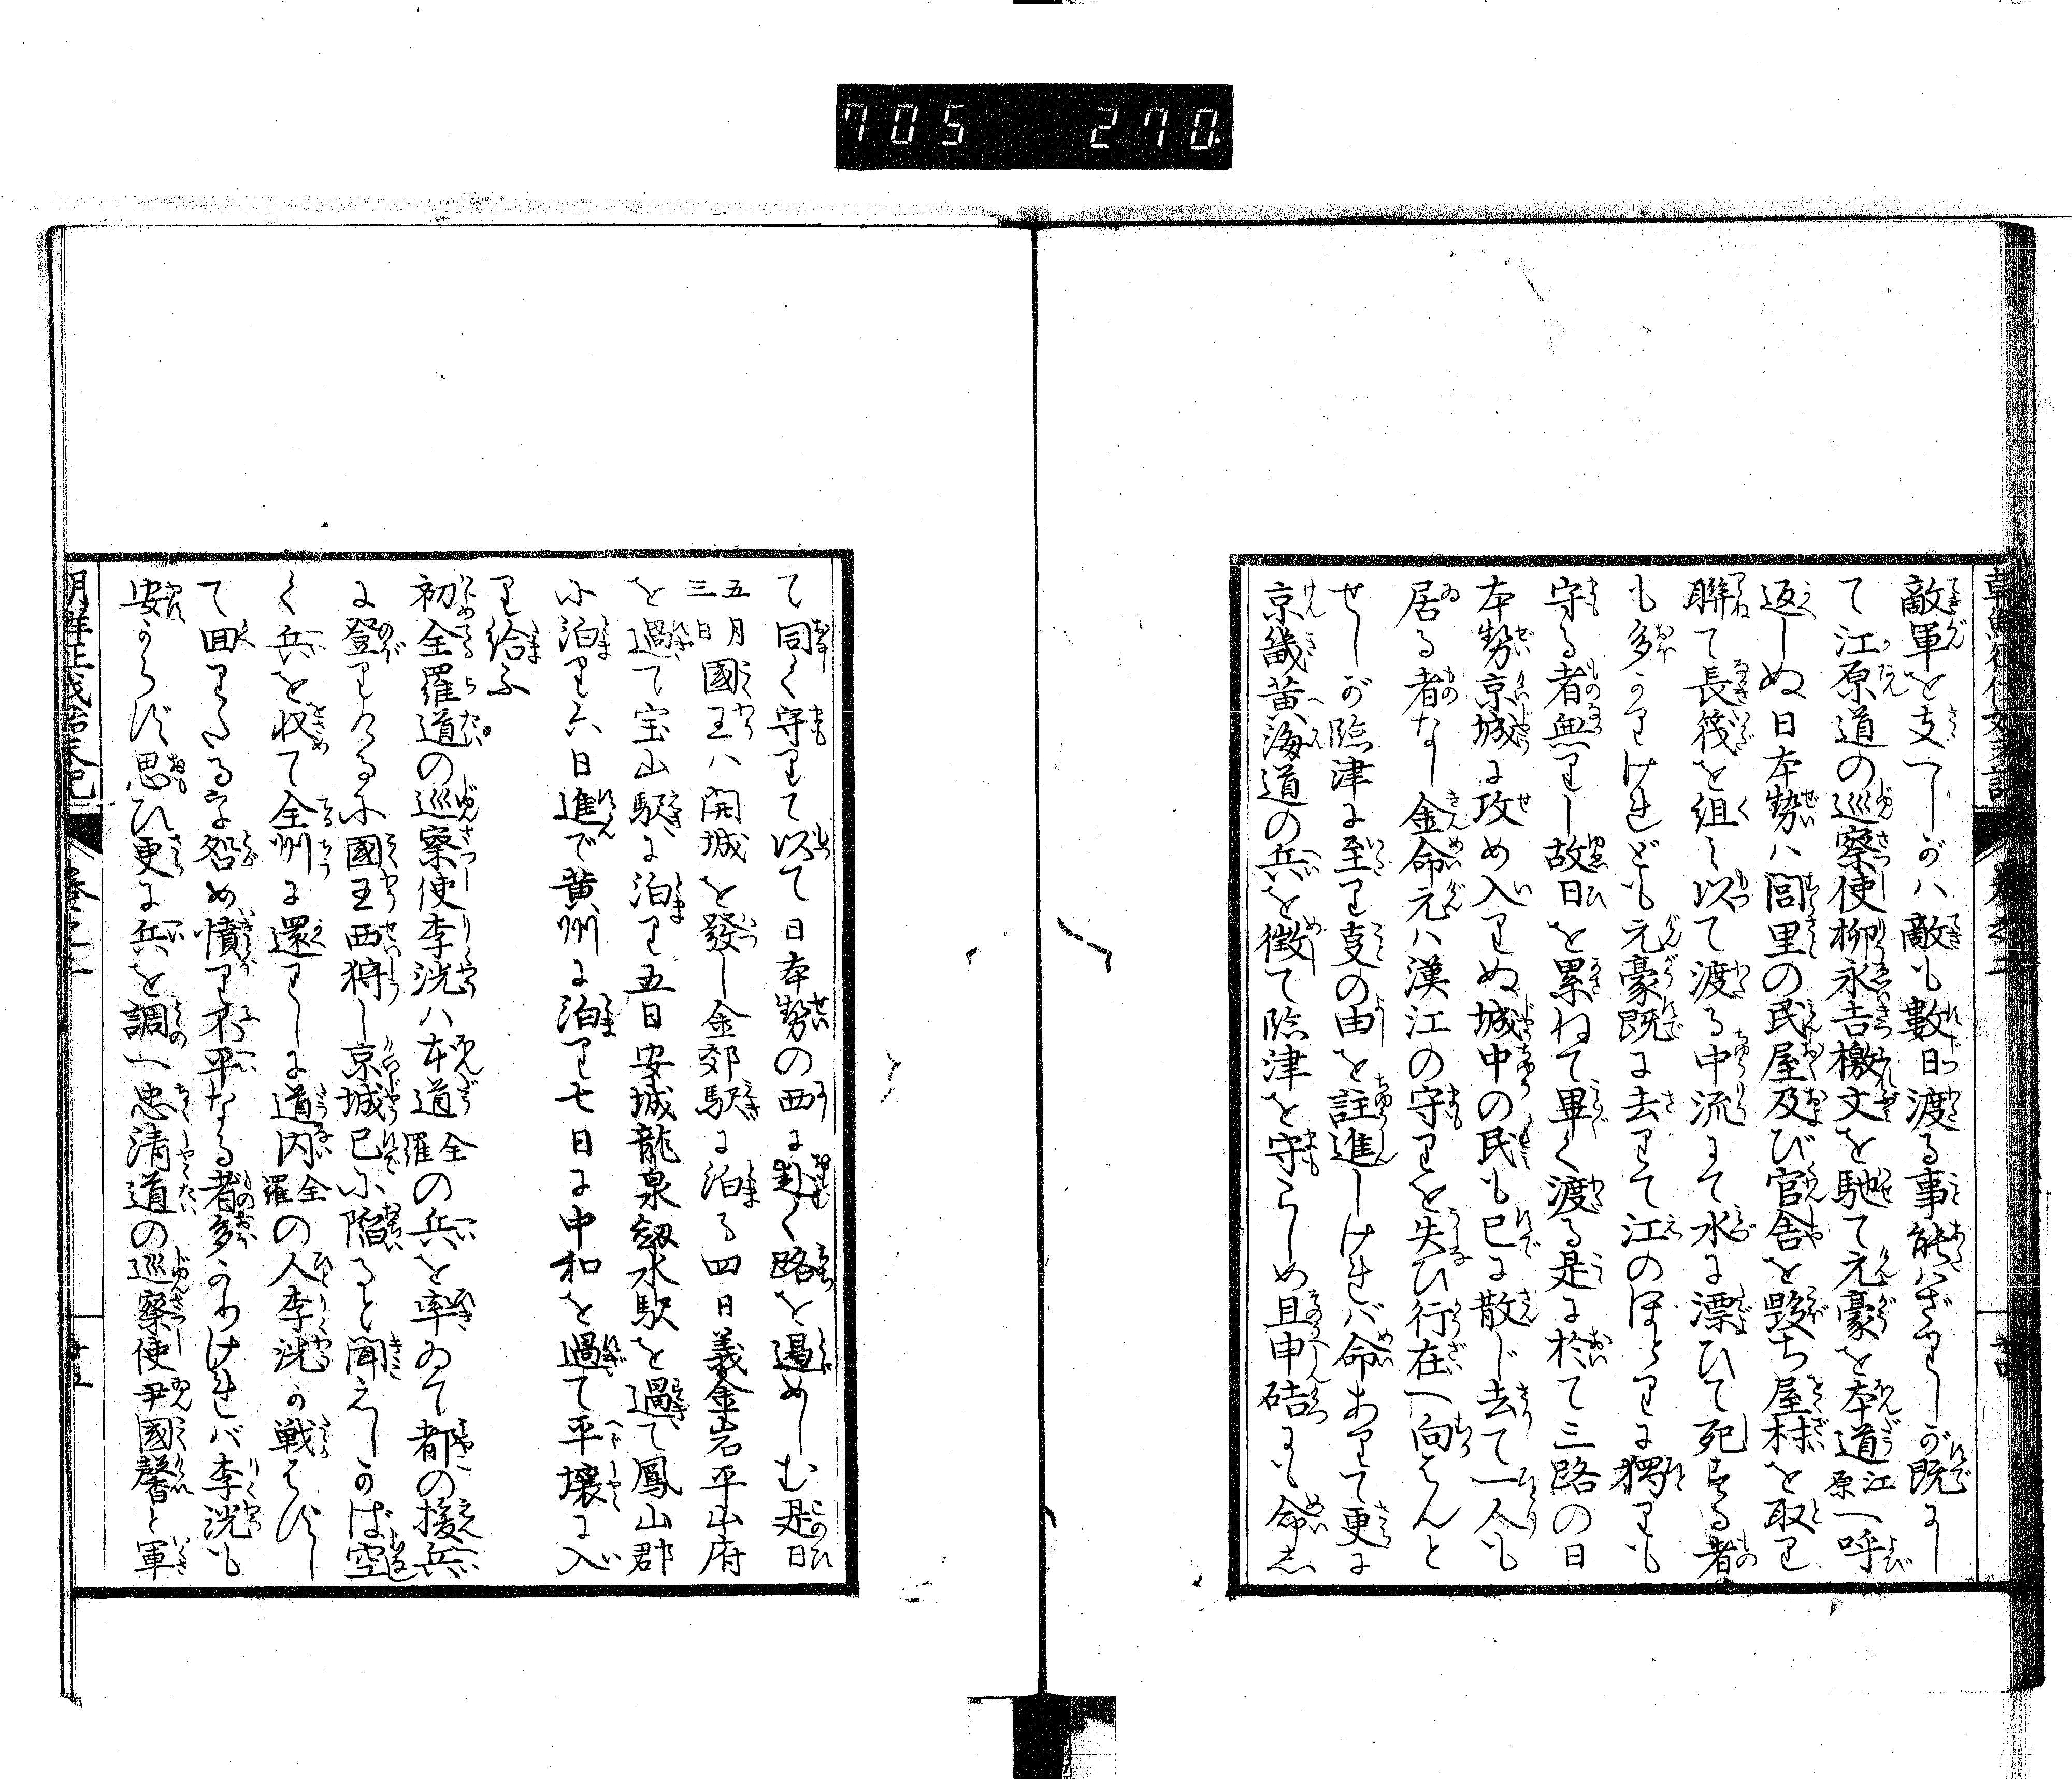 705 270.
敵軍を支へしが八敵も數日渡る事能はざりしが既にし
て江原道の巡察使柳永吉檄文を馳て元豪を本道江原へ呼
返しぬ日本勢ハ閭里の民屋及び官舎を毀ち屋材を取り
聯て長筏を組み以て渡る中流にて水に漂ひて死する者
も多かりけれども元豪既に去りて江のほとりに獨りも
守る者無りし故日を累ねて軍く渡る是に於て三路の日
本勢京城に攻め入りぬ城中の民も已に散じ去て一人も
居る者なし金命元ハ漢江の守りを失ひ行在へ向はんと
せしが臨津に至り支の由を註進しければ命ありて更に
京畿黄海道の兵を徴て臨津を守らしめ且申硈にも命志
て同く守りて以て日本勢の西に赴く路を遏めしむ是日
五月三日國王ハ開城を發し金郊駅に泊る四日義金岩平山府
を過て宝山駅に泊り五日安城龍泉劔水駅を過て鳳山郡
に泊り六日進で黄州に泊り七日に中和を過て平壌に入
り給ふ
初全羅道の巡察使李洸ハ本道全羅の兵を率ゐて都の援兵
に登りたるに國王西狩し京城已に陥ると聞えしかば空
く兵を収て全州に還りしに道内全羅の人李洸が戦はずし
て回りたるを咎め憤り不平なる者多かりければ李洸も
安からず思ひ更に兵を調へ忠清道の巡察使尹國馨と軍